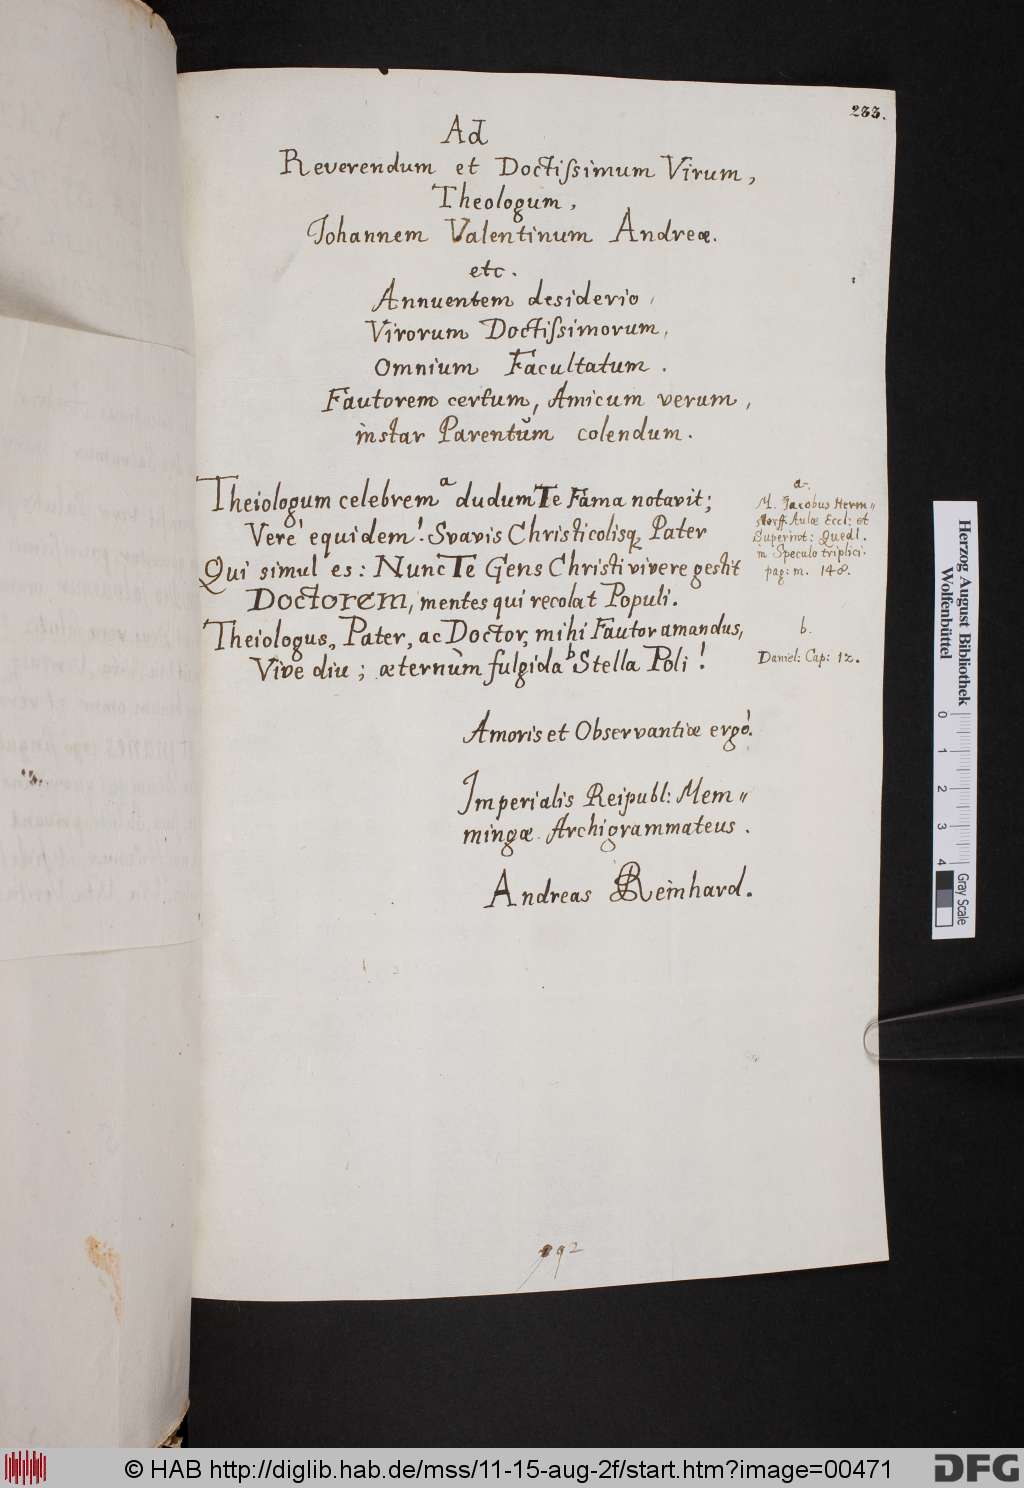 233.
Ad
Reverendum et Doctiſsimum Virum,
Theologum,
Johannem Valentinum Andreæ.
etc.
Annuentem desiderio,
Virorum Doctiſsimorum,
Omnium Facultatum.
Fautorem certum, Amicum verum,
instar Parentŭm colendum.
Theiologum celebrem ᵃ dudum Te Fama notavit;
Verè equidem! Svavis Christicolisq; Pater
Qui simul es: Nunc Te Gens Christi vivere gestit
Doctorem, mentes qui recolat Populi.
Theiologus, Pater, ac Doctor, mihi Fautor amandus,
Vive diu; æternùm fulgida ᵇ Stella Poli!
a.
M. Jacobus Herm〃
storff. Aulæ Eccl: et
Superint: Quedl.
in Speculo triplici.
pag: m. 148.
b.
Daniel: Cap: 12.
Amoris et Observantiæ ergò.
Imperialis Reipubl: Mem〃
mingæ Archigrammateus.
Andreas Reinhard.
392
Herzog August Bibliothek
Wolfenbüttel
0 1 2 3 4
Gray Scale
© HAB http://diglib.hab.de/mss/11-15-aug-2f/start.htm?image=00471
DFG